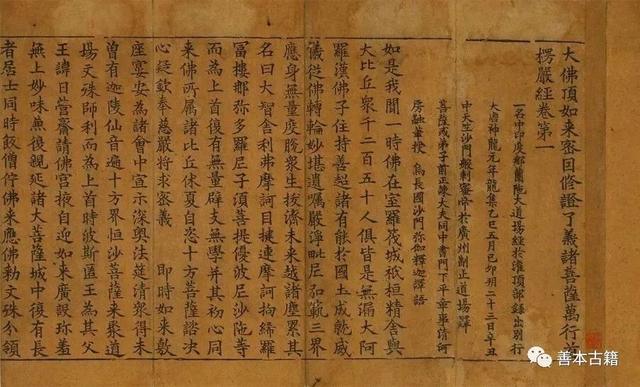 大佛頂如來密因修證了義諸菩薩萬行首
楞嚴經卷第一
一名中印度那蘭陁大道場經於灌頂部錄出別行
大唐神龍元年龍集乙巳五月己卯朔二十三日辛丑
中天竺沙門般剌蜜帝於廣州制止道場譯
菩薩戒弟子前正諫大夫同中書門下平章事清河
房融筆授 烏長國沙門弥伽釋迦譯語
如是我聞一時佛在室羅筏城祇桓精舍與
大比丘衆千二百五十人俱皆是無漏大阿
羅漢佛子住持善超諸有能於國土成就威
儀從佛轉輪妙堪遺囑嚴淨毗尼弘範三界
應身無量度脫衆生拔濟未來越諸塵累其
名曰大智舍利弗摩訶目揵連摩訶拘絺羅
冨樓那弥多羅尼子須菩提優波尼沙陁等
而為上首復有無量辟支無學并其初心同
來佛所屬諸比丘休夏自恣十方菩薩諮決
心疑欽奉慈嚴將求密義 即時如來敷
座宴安為諸會中宣示深奧法筵清衆得未
曾有迦陵仙音遍十方界恒沙菩薩來聚道
場文殊師利而為上首時波斯匿王為其父
王諱日營齋請佛宮掖自迎如來廣設珎羞
無上妙味兼復親延諸大菩薩城中復有長
者居士同時飯僧佇佛來應佛勑文殊分領
善本古籍